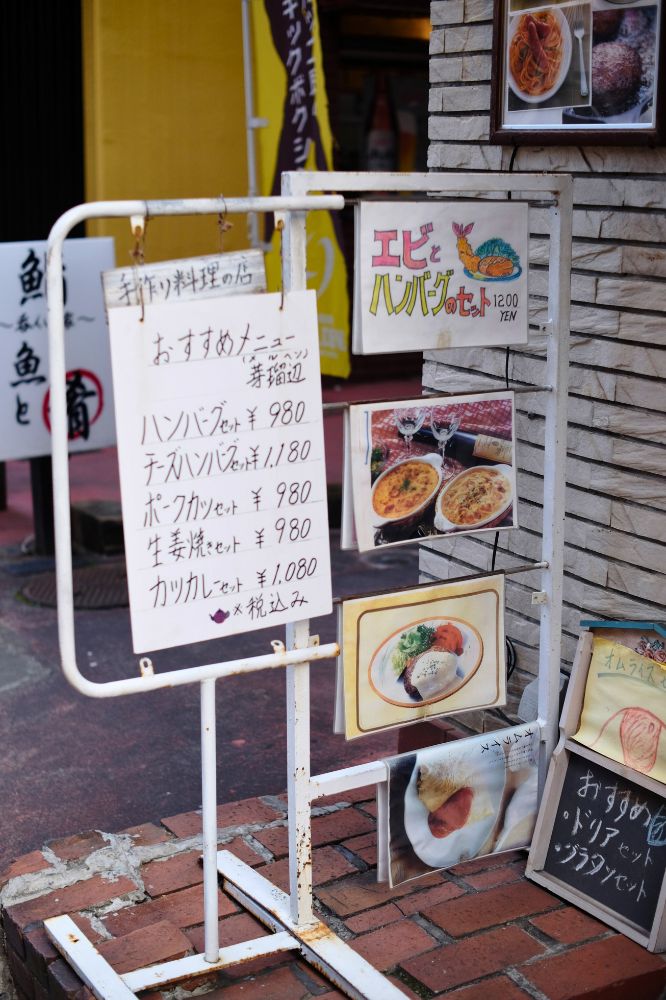 手作り料理の店
おすすめメニュー
(メルヘン)
芽瑠辺
ハンバーグセット ¥980
チーズハンバーグセット ¥1,180
ポークカツセット ¥980
生姜焼きセット ¥980
カツカレーセット ¥1,080
※税込み
エビと
ハンバーグのセット 1200
YEN
オムライス
オムライス
おすすめ
・ドリアセット
・グラタンセット
キックボクシ
魚
と
肴